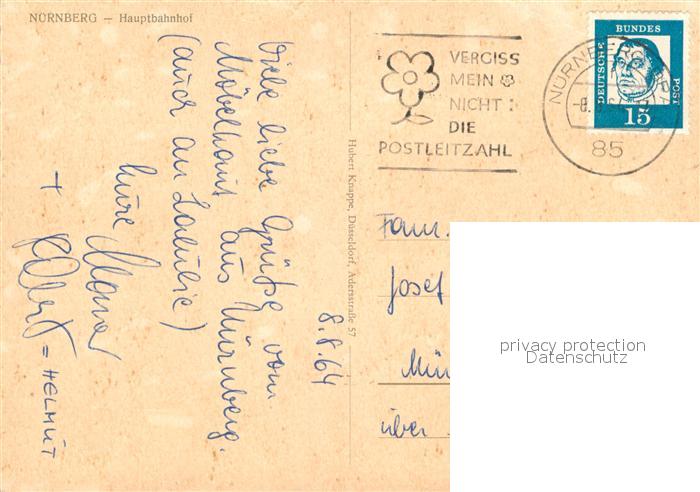 NÜRNBERG — Hauptbahnhof
VERGISS
MEIN
NICHT:
DIE
POSTLEITZAHL
NÜRNBERG
85
DEUTSCHE
BUNDES
POST
15
8.8.64
Viele liebe Grüße vom
Möbelhaus aus Nürnberg.
(auch an Loisulie)
Eure
+
= HELMUT
Hubert Knappe, Düsseldorf, Adersstraße 57
Fam.
Josef
Mün
über
privacy protection
Datenschutz